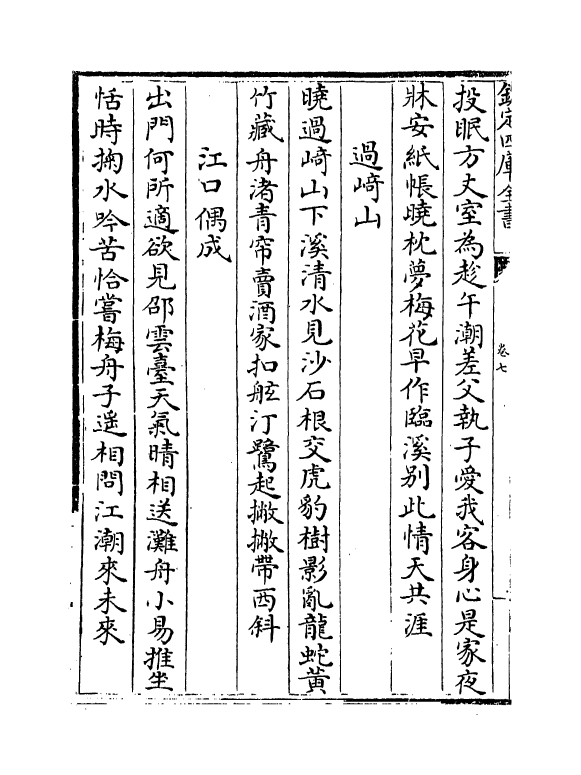 欽定四庫全書
卷七
投眠方丈室為趁午潮差父執子愛我客身心是家夜
牀安紙帳曉枕夢梅花早作臨溪別此情天共涯
過﨑山
曉過﨑山下溪清水見沙石根交虎豹樹影亂龍蛇黄
竹藏舟渚青帘賣酒家扣舷汀鷺起撇撇帶西斜
江口偶成
出門何所適欲見邵雲臺天氣晴相送灘舟小易推坐
恬時掬水吟苦恰嘗梅舟子遥相問江潮來未來